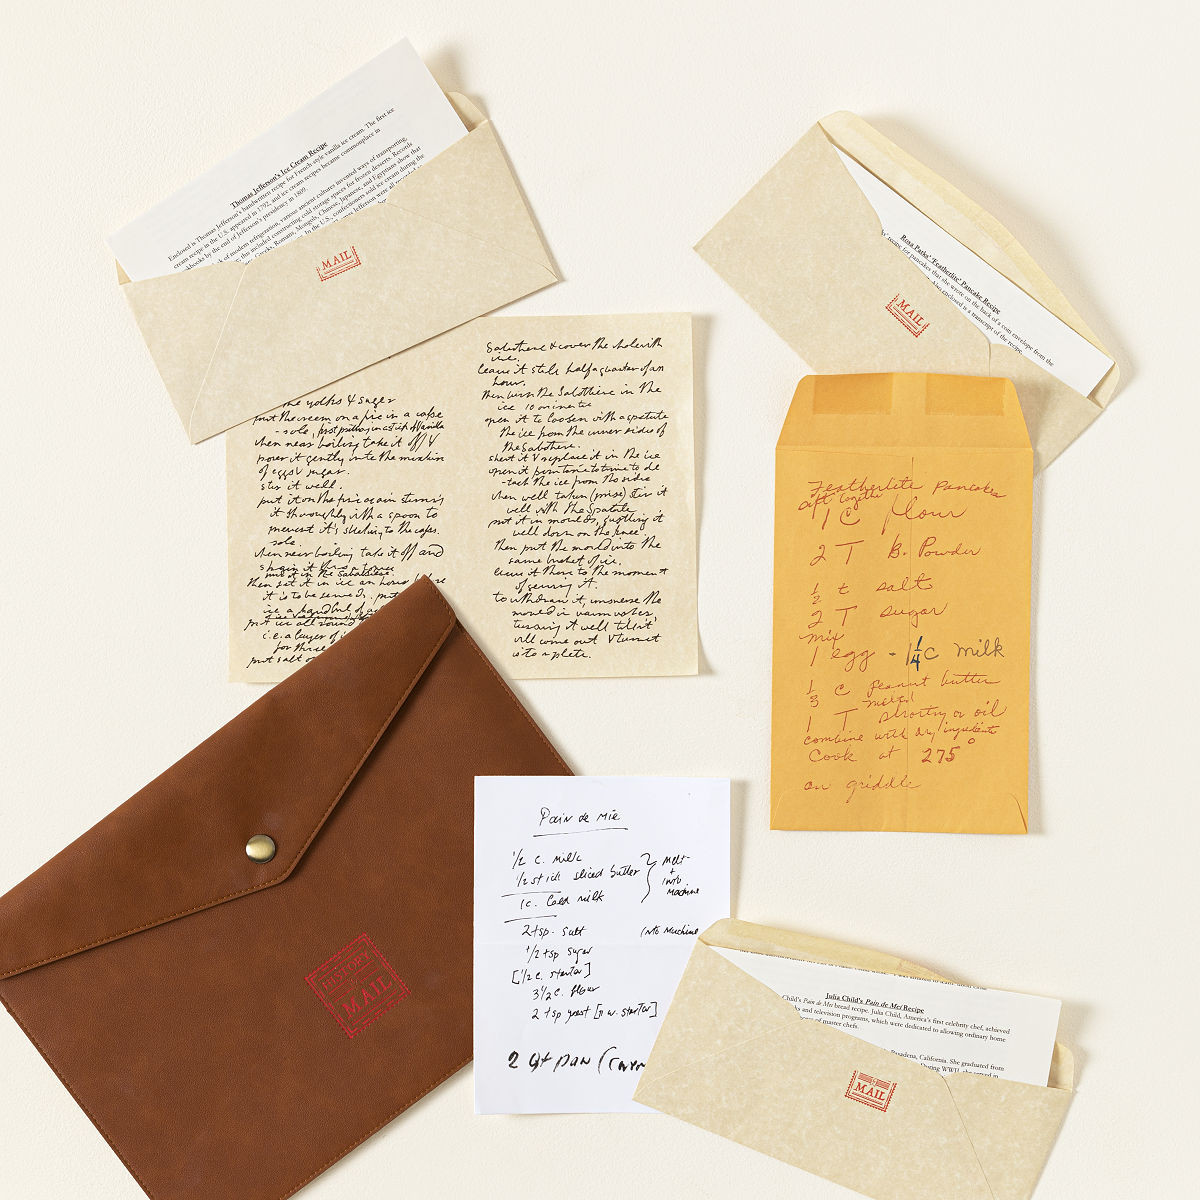 Thomas Jefferson's Ice Cream Recipe
Enclosed is Thomas Jefferson's handwritten recipe for French style vanilla ice cream. The first ice
cream recipe in the U.S. appeared in 1792, and ice cream recipes became commonplace in
cookbooks by the end of Jefferson's presidency in 1809.
of modern refrigeration, various ancient cultures invented ways of transporting,
this included constructing cold storage spaces for frozen desserts. Records
Greeks, Romans, Mongols, Chinese, Japanese, and Egyptians show that
In the U.S., confectioners sold ice cream during the
Jefferson were all
MAIL
Rosa Parks' 'Featherlite' Pancake Recipe
recipe for pancakes that she wrote on the back of a coin envelope from the
Also enclosed is a transcript of the recipe.
MAIL
the yolks & sugar
put the cream on a fire in a casse
-role, first putting in a stick of Vanilla
when near boiling take it off &
pour it gently into the mixture
of eggs & sugar.
stir it well.
put it on the fire again stirring
it thoroughly with a spoon to
prevent it's sticking to the casse
role.
when near boiling take it off and
strain it thro' a towel
put it in the Sabottiere
then set it in ice an hour before
it is to be served. put
ice a handful of
put ice all round
i.e. a layer of
for three
put salt on
Sabotiere & cover the whole with
ice.
leave it still half a quarter of an
hour.
then turn the Sabottiere in the
ice 10 minutes
open it to loosen with a spatula
the ice from the inner sides of
the Sabotiere.
shut it & replace it in the ice
open it from time to time to de
-tach the ice from the sides
when well taken (prise) stir it
well with the Spatula.
put it in moulds, justling it
well down on the knee.
then put the mould into the
same bucket of ice.
leave it there to the moment
of serving it.
to withdraw it, immerse the
mould in warm water,
turning it well till it
will come out & turn it
into a plate.
Featherlite Pancakes
sift together
1 C flour
2 T B. Powder
1/2 t salt
2 T sugar
mix
1 egg - 1 1/4 C milk
1/3 C peanut butter
melted
1 T shortng or oil
combine with dry ingredients
Cook at 275°
on griddle
HISTORY
BY
MAIL
Pain de Mie
1/2 c. milk
1/2 stick sliced butter
melt
+
into
machine
1c. Cold milk
2 tsp. salt
into machine
1/2 tsp sugar
[1/2 c. starter]
3 1/2 c. flour
2 tsp yeast [n w. starter]
2 qt pan (
Julia Child's Pain de Mei Recipe
Child's Pain de Mei bread recipe. Julia Child, America's first celebrity chef, achieved
and television programs, which were dedicated to allowing ordinary home
of master chefs.
Pasadena, California. She graduated from
During WWII, she served in
MAIL